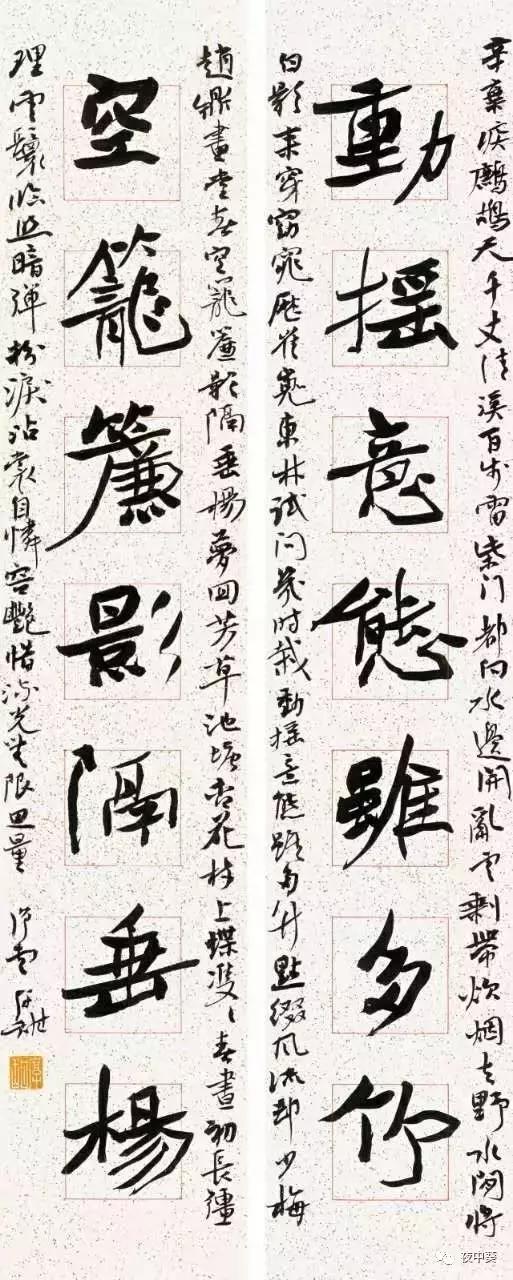 辛棄疾鷓鴣天千丈清溪百步雷柴门都向水邊開亂雲剩帶炊烟去野水闲將
動搖意態雖多竹
白影来穿窈窕歷崔嵬東林試问幾时栽動搖意態雖多竹點綴风流却少梅
趙鼎畫堂春空籠簾影隔垂楊夢回芳草池塘杏花枝上蝶雙〻春晝初長彊
空籠簾影隔垂楊
理雲鬟临照暗彈粉淚沾裳自憐容艷惜流光無限思量
夜中葵